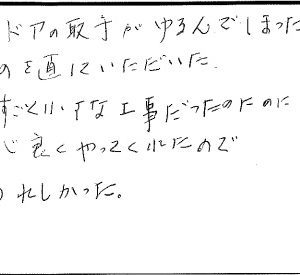 ドアの取手がゆるんでしまった
のを直していただいた.
な工事だったのにの
良くやってくれたので
れしかった。